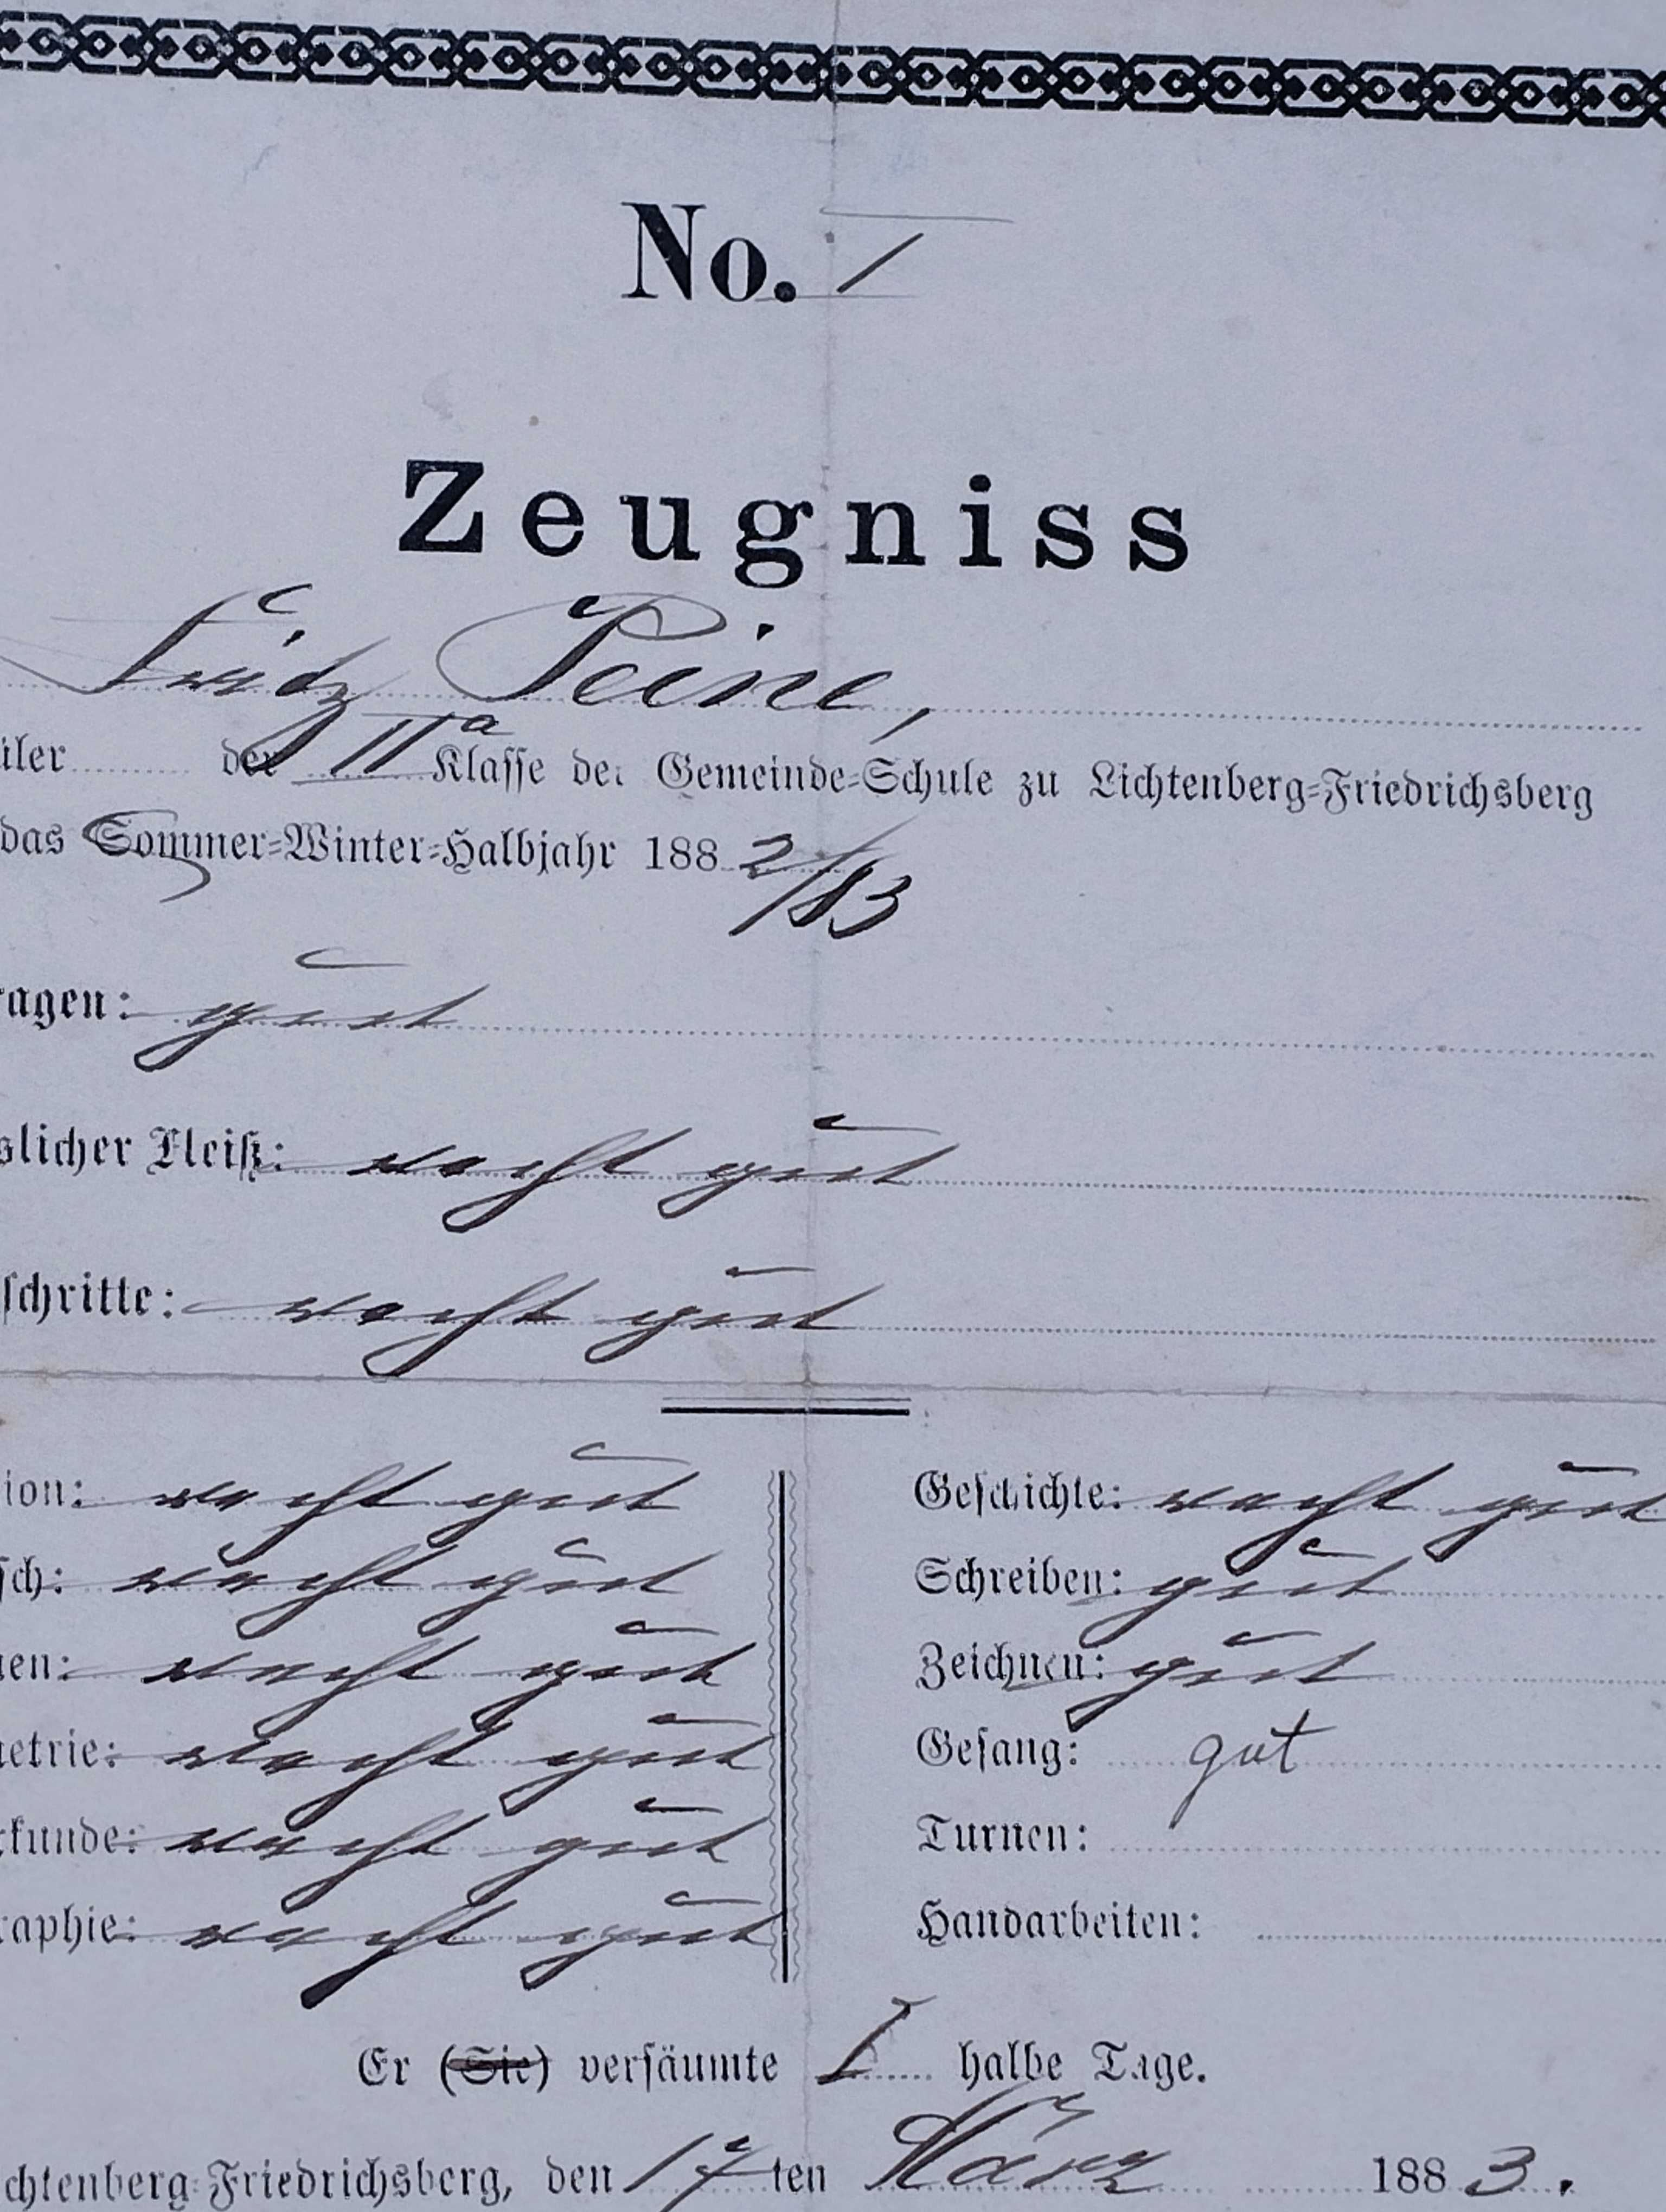 No. 1
Zeugniss
Fritz Peine,
üler der IIa Klasse der Gemeinde-Schule zu Lichtenberg-Friedrichsberg
das Sommer-Winter-Halbjahr 1882/83
ragen: gut
slicher Fleiß: recht gut
schritte: recht gut
ion: recht gut
Geschichte: recht gut
sch: recht gut
Schreiben: gut
nen: recht gut
Zeichnen: gut
etrie: recht gut
Gesang: gut
rkunde: recht gut
Turnen:
raphie: recht gut
Handarbeiten:
Er (Sie) versäumte halbe Tage.
chtenberg-Friedrichsberg, den 17ten März 1883.